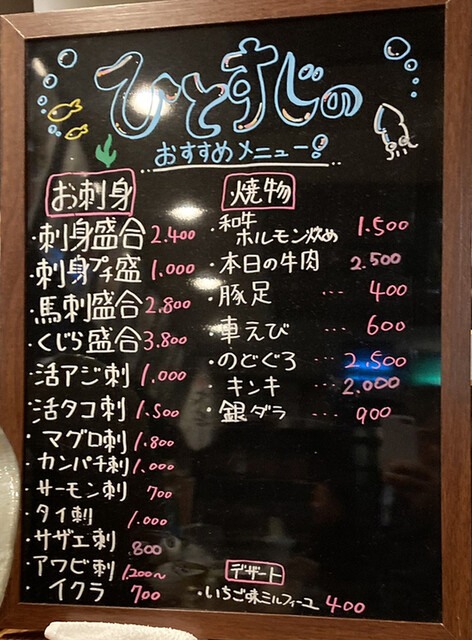 ひとすじの
おすすめメニュー!
お刺身
・刺身盛合 2.400
・刺身プチ盛 1.000
・馬刺盛合 2.800
・くじら盛合 3.800
・活アジ刺 1.000
・活タコ刺 1.500
・マグロ刺 1.800
・カンパチ刺 1.000
・サーモン刺 700
・タイ刺 1.000
・サザエ刺 800
・アワビ刺 1,200〜
・イクラ 700
焼物
・和牛
ホルモン炒め 1.500
・本日の牛肉 2.500
・豚足 … 400
・車えび … 600
・のどぐろ … 2,500
・キンキ … 2.000
・銀ダラ … 900
デザート
・いちご味ミルフィーユ 400